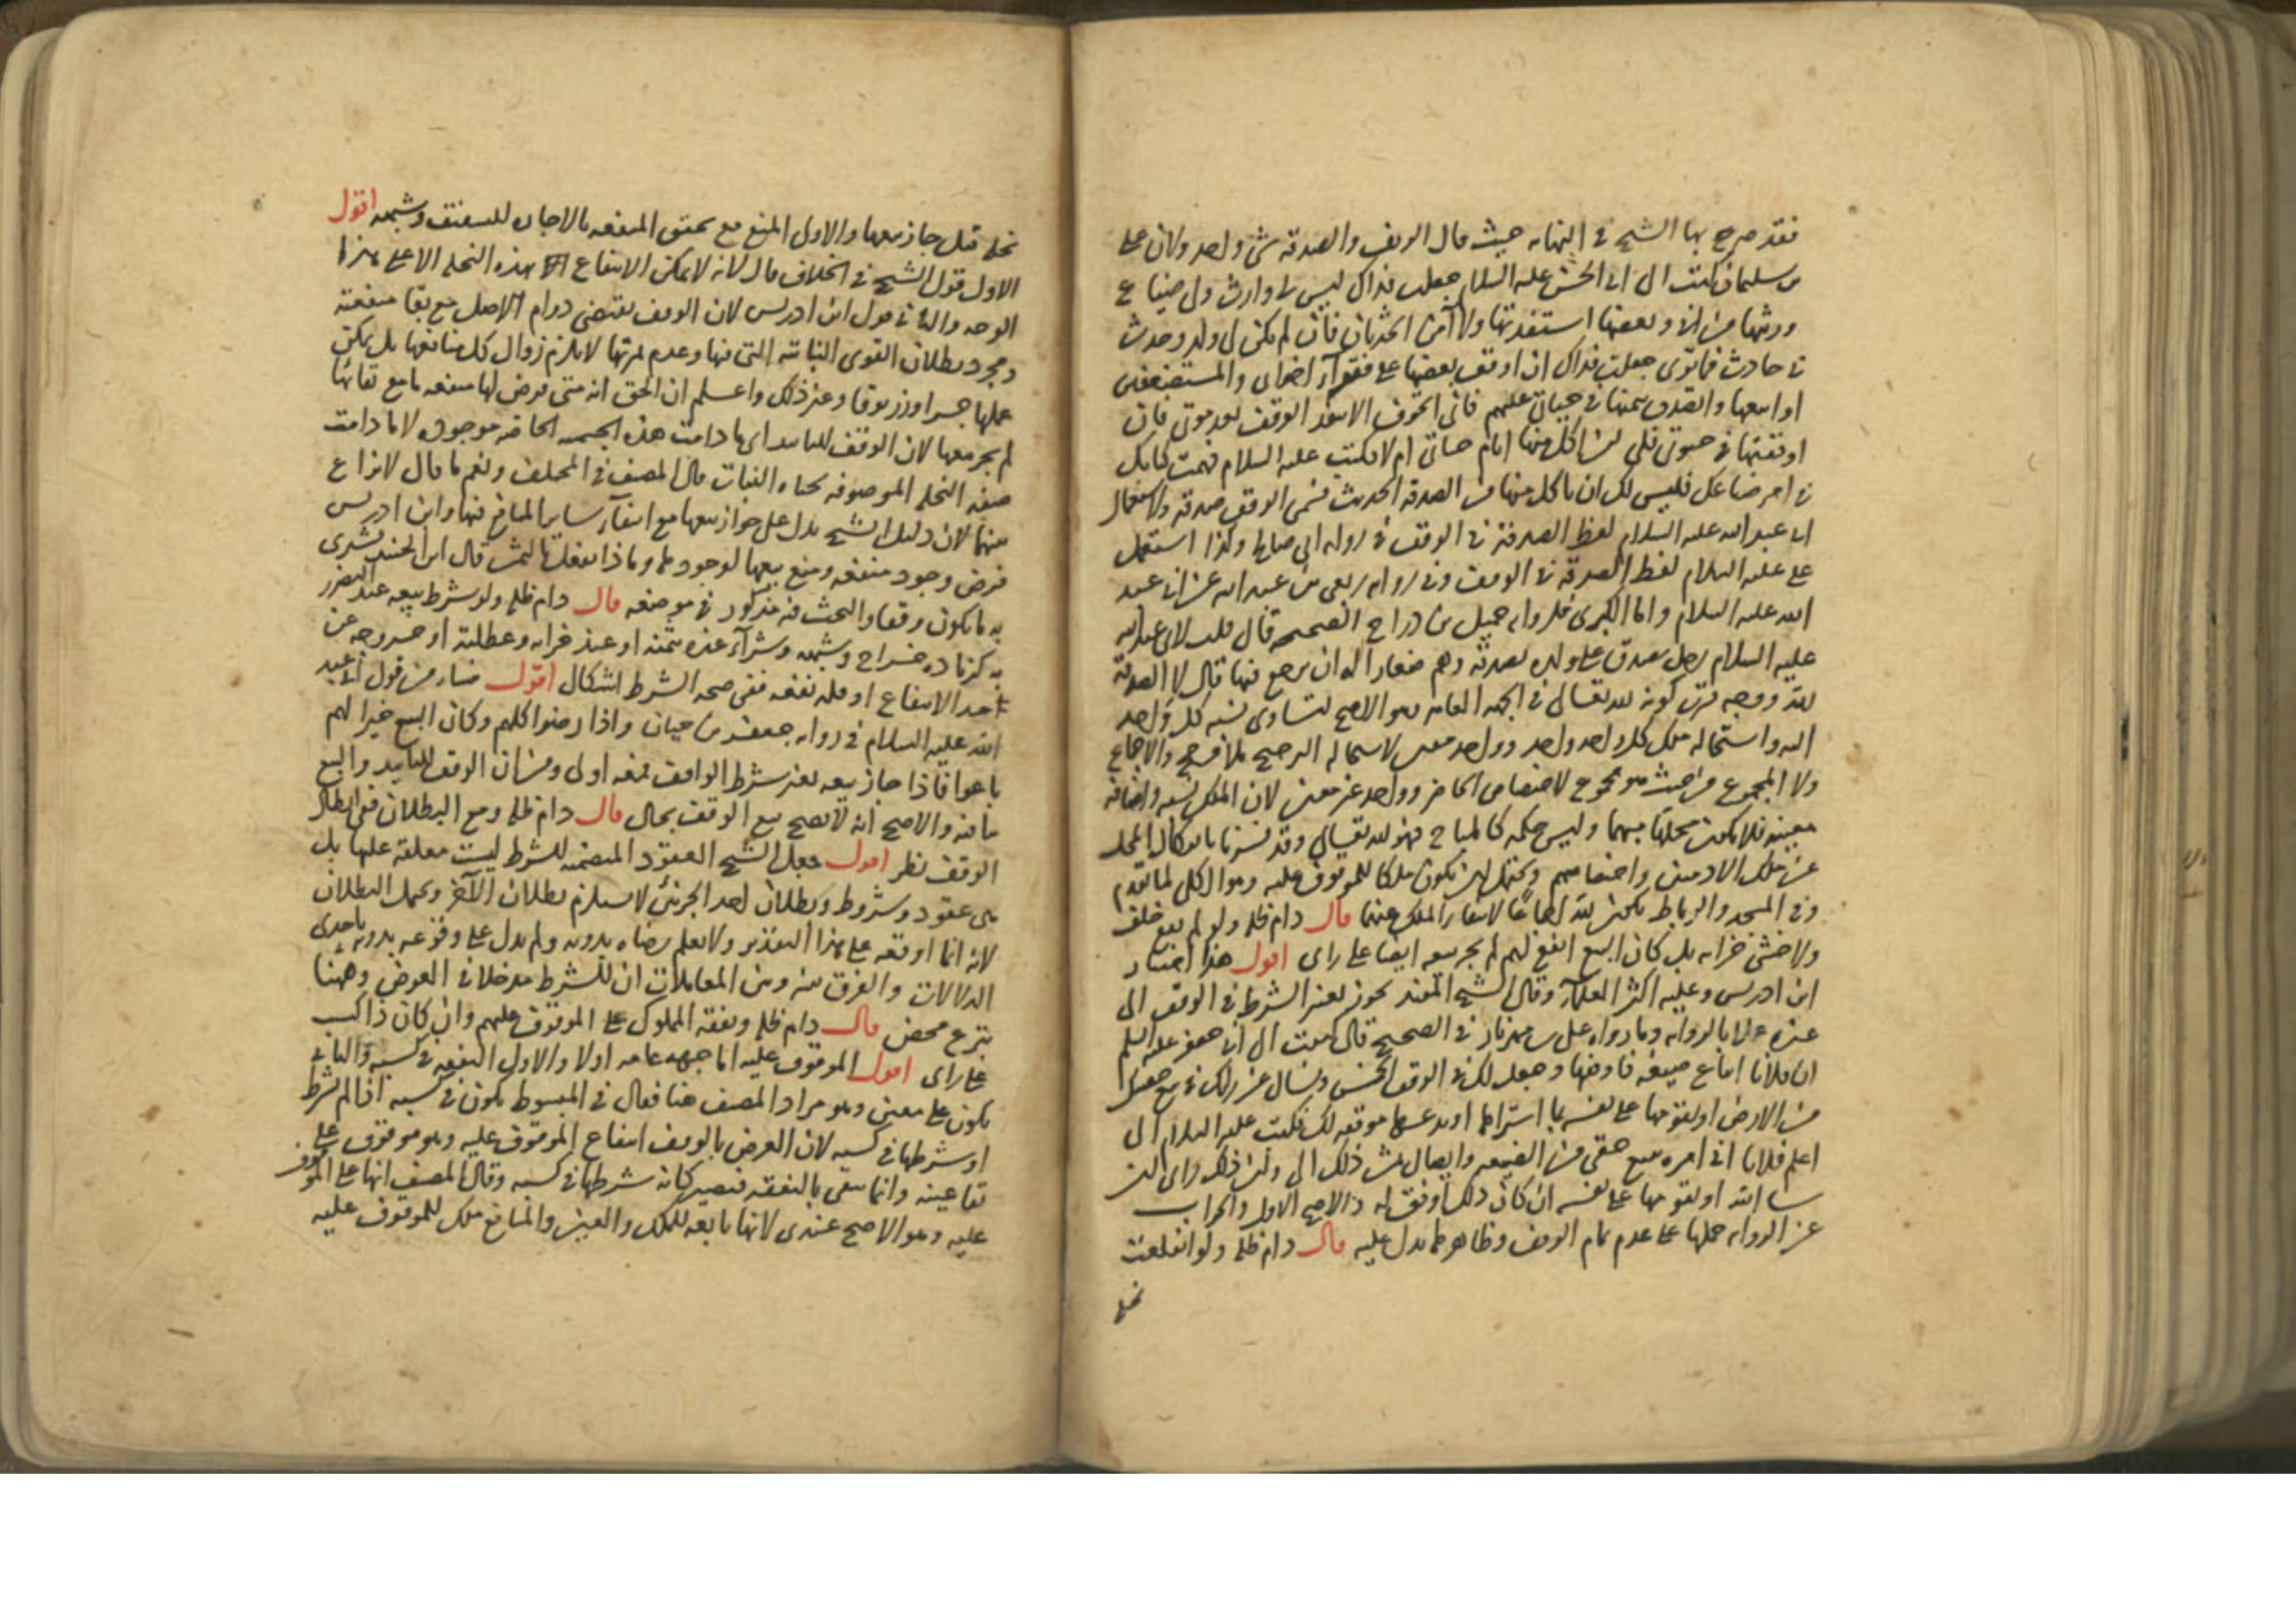 فقد صرح بها الشيخ في النهاية حيث قال الوقف والصدقة شئ واحد ولان علي
بن سليمان كتب الى ابي الحسن عليه السلام جعلت فداك ليس لي وارث ولي ضياع
ورثتها من ابي وبعضها استفدتها ولا آمن الحدثان فان لم يكن لي ولد وحدث
في حادث فما ترى جعلت فداك ان اوقف بعضها على فقراء اخواني والمستضعفين
او ابيعها واتصدق بثمنها في حياتي عليهم فاني اتخوف الا ينفذ الوقف بعد موتي فان
اوقفتها في حيوتي فلي ان آكل منها ايام حياتي ام لا فكتب عليه السلام فهمت كتابك
في امر ضياعك فليس لك ان تاكل منها من الصدقة الحديث فسمى الوقف صدقة ولاستعمال
ابي عبد الله عليه السلام لفظ الصدقة في الوقف في رواية ابي صالح وكذا استعمل
علي عليه السلام لفظ الصدقة في الوقف وفي رواية ربعي بن عبد الله عن ابي عبد
الله عليه السلام واما الكبرى فلرواية جميل بن دراج الصحيحة قال قلت لابي عبد الله
عليه السلام رجل تصدق على ولده بصدقة وهم صغار أله ان يرجع فيها قال لا الصدقة
لله ووجه قرب كونه لله تعالى في الجهة العامة وهو الاصح لتساوي نسبة كل واحد
اليه واستحالة ملك كل واحد واحد وواحد معين لاستحالة الترجيح بلا مرجح والاجماع
ولا المجموع من حيث هو مجموع لاختصاص الحاضر وواحد غير معين لان الملك نسبة واضافة
معينة فلا يكون محلها مبهما وليس حكمه كالمباح فهو لله تعالى وقد فسرنا بانفكاك المحل
عن ملك الادميين واختصاصهم ويحتمل ان يكون ملكا للموقوف عليه وهو الكل لما تقدم
وفي المسجد والرباط يكون لله اجماعا لانتفاء الملك عنهما قال دام ظله ولو لم يقع خلف
ولا خشي خرابه بل كان البيع انفع لهم لم يجز بيعه ايضا على رأى اقول هذا اختيار
ابن ادريس وعليه اكثر العلماء وقال الشيخ المفيد يجوز تغير الشرط في الوقف الى
غيره عملا بالرواية وما رواه علي بن مهزيار في الصحيح قال كتبت الى ابي جعفر عليه السلم
ان فلانا ابتاع ضيعة فاوقفها وجعل لك في الوقف الخمس ويسأل عن رأيك في بيع حصتك
من الارض او تقويمها على نفسه بما اشتراها او يدعها موقفه لك فكتب عليه السلام الي
اعلم فلانا اني امره ببيع حقي من الضيعة وايصال ثمن ذلك الي وان ذلك رأى ان
شا الله او يقومها على نفسه ان كان ذلك اوفق له والاصح الاول والجواب
عن الرواية حملها على عدم تمام الوقف وظاهرها يدل عليه قال دام ظله ولو انقلعت
نخلة
نخلة قيل جاز بيعها والاولى المنع مع تحقق المنفعة بالاجارة للتسقيف وشبهه اقول
الاول قول الشيخ في الخلاف قال لانه لا يمكن الانتفاع بهذه النخلة الا على هذا
الوجه والثاني قول ابن ادريس لان الوقف يقتضي دوام الاصل مع بقا منفعته
ومجرد بطلان القوى النباتية التي فيها وعدم ثمرتها لا يلزم زوال كل منافعها بل يمكن
عملها جسرا وزرنوقا وغير ذلك واعلم ان الحق انه متى فرض لها منفعة ما مع بقائها
لم يجز بيعها لان الوقف للتابيد اي ما دامت هذه الجسمية الحاضرة موجودة لا ما دامت
صفة النخلة الموصوفة بحياة النبات قال المصنف في المختلف ونعم ما قال لا نزاع
بينهما لان دليل الشيخ يدل على جواز بيعها مع انتفاء ساير المنافع فيها وابن ادريس
فرض وجود منفعة ومنع بيعها لوجودها وماذا يفعل بالثمن قال ابن الجنيد يشترى
به ما يكون وقفا والبحث فيه مذكور في موضعه قال دام ظله ولو شرط بيعه عند التضرر
به كزيادة خراج وشبهه وشراء غيره بثمنه او عند خرابه وعطلته او خروجه عن
حد الانتفاع او قلة نفعه ففي صحة الشرط اشكال اقول ينشا من قول ابي عبد
الله عليه السلام في رواية جعفر بن حيان واذا رضوا كلهم وكان البيع خيرا لهم
باعوا فاذا جاز بيعه بغير شرط الواقف فمعه اولى ومن ان الوقف للتابيد والبيع
ينافيه والاصح انه لا يصح بيع الوقف بحال قال دام ظله ومع البطلان ففي ابطال
الوقف نظر اقول جعل الشيخ العقود المتضمنة للشرط ليست معلقة عليها بل
هي عقود وشروط وبطلان احد الجزئين لا يستلزم بطلان الآخر ويحتمل البطلان
لانه انما اوقعه على هذا التقدير ولا يعلم رضاه بدونه ولم يدل على وقوعه بدونه باحدى
الدلالات والفرق بينه وبين المعاملات ان للشرط مدخلا في العوض وههنا
تبرع محض قال دام ظله ونفقة المملوك على الموقوف عليهم وان كان ذا كسب
على راى اقول الموقوف عليه اما جهة عامة اولا والاول النفقة في كسبه والثاني
يكون على معين وهو مراد المصنف هنا فقال في المبسوط يكون في كسبه اذا لم يشرط
او شرطها في كسبه لان الغرض بالوقف انتفاع الموقوف عليه وهو موقوف على
بقا عينه وانما يبقى بالنفقة فيصير كانه شرطها في كسبه وقال المصنف انها على الموقوف
عليه وهو الاصح عندى لانها تابعة للملك والعين والمنافع ملك للموقوف عليه